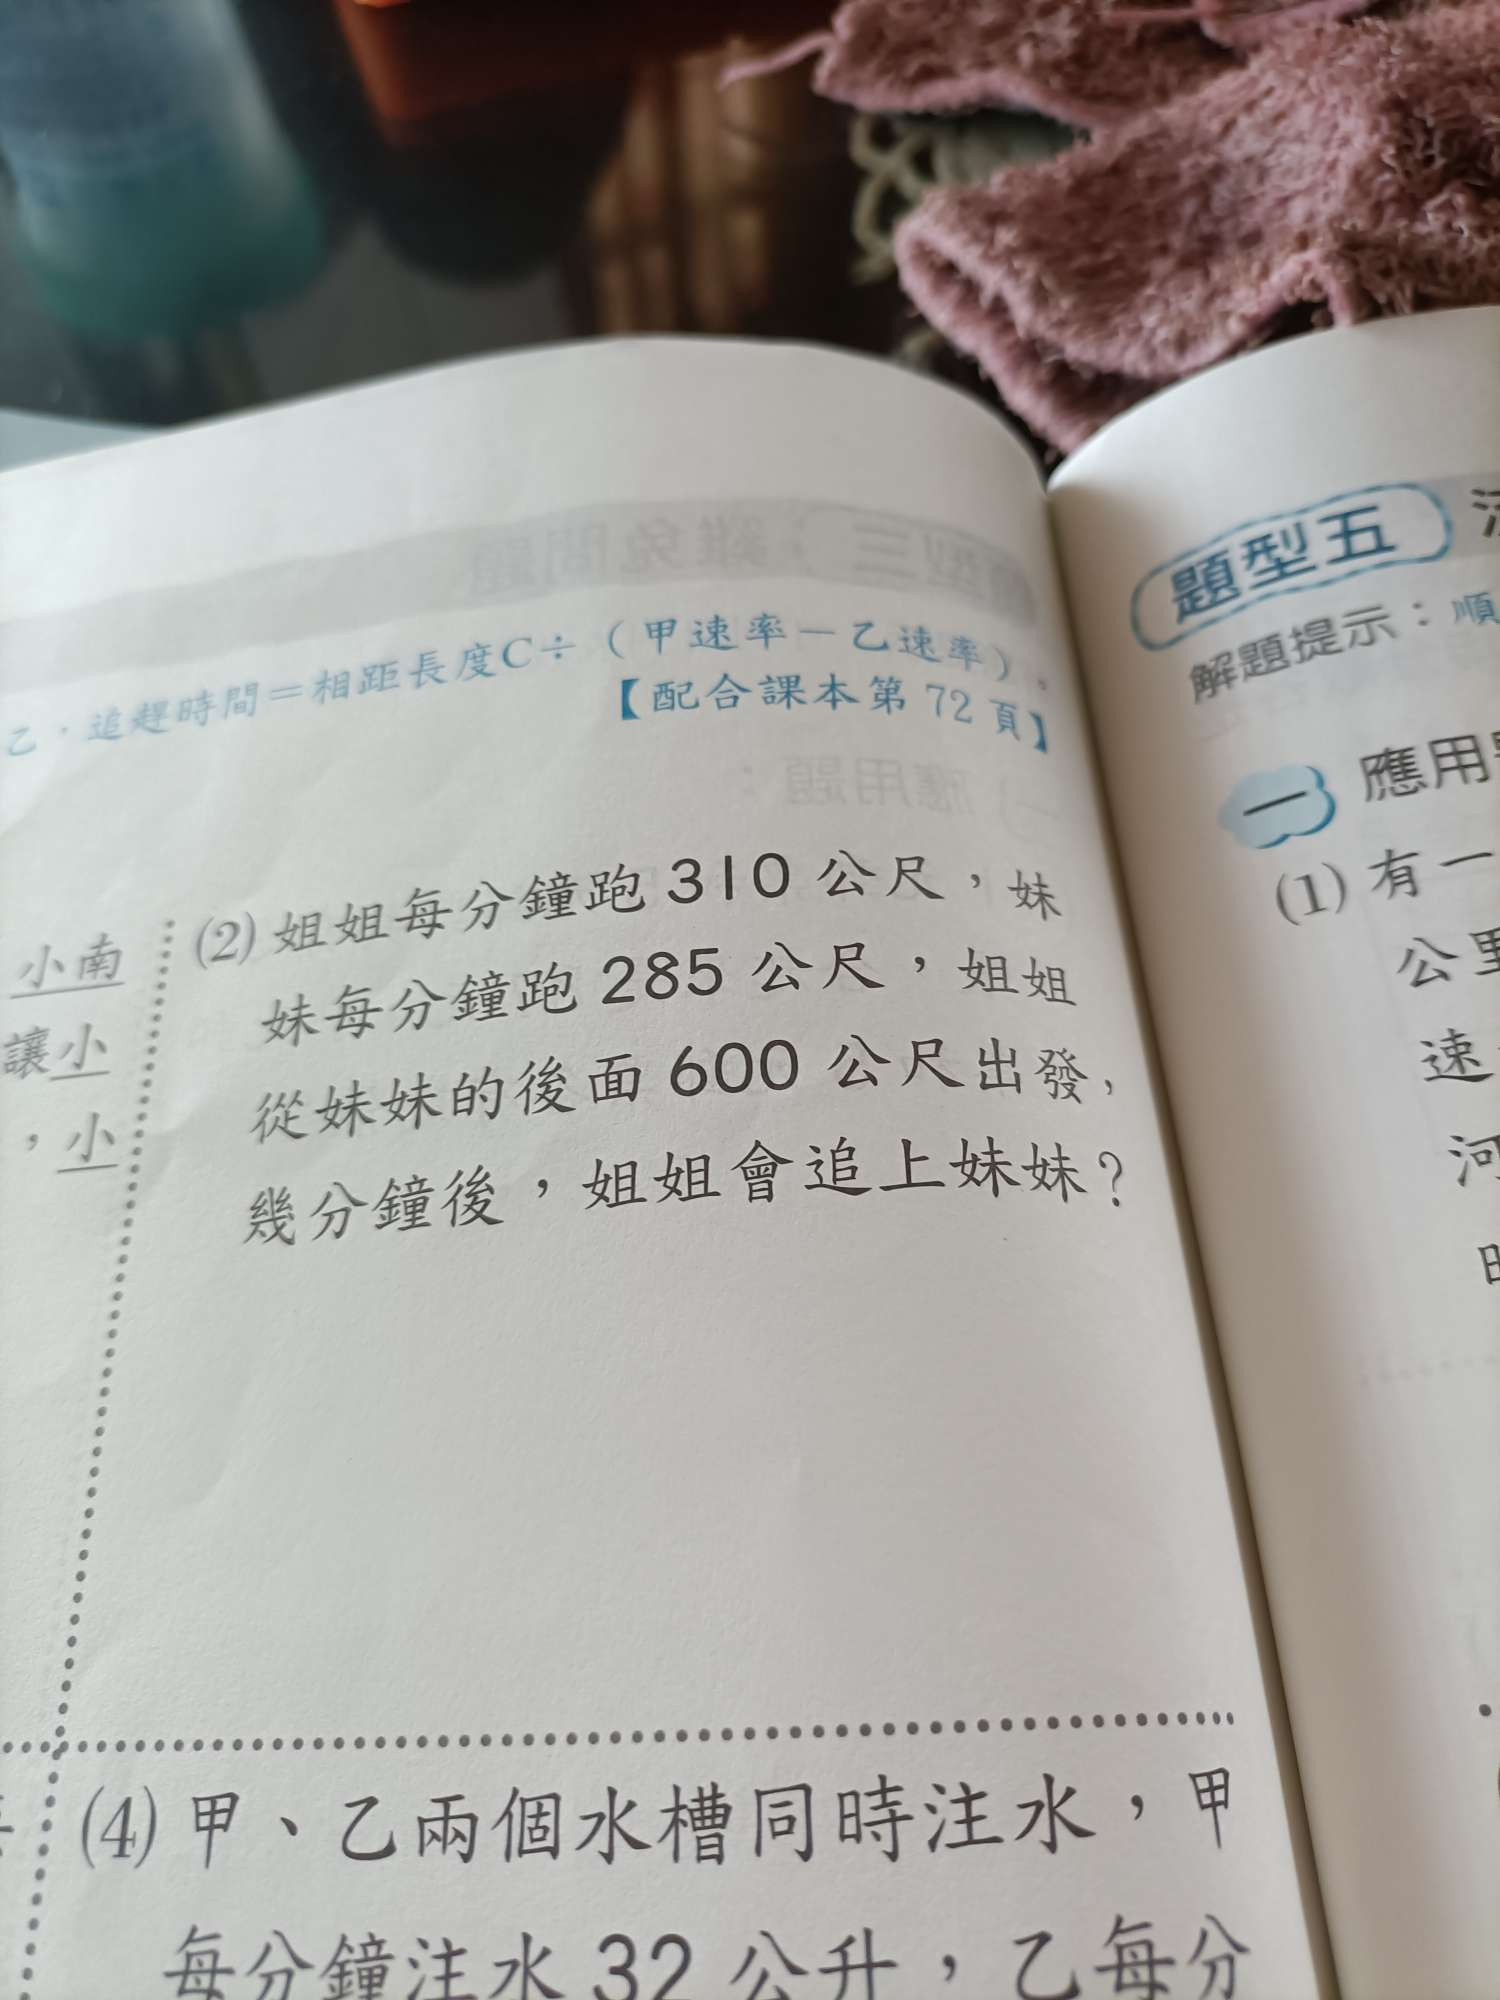 乙，追趕時間＝相距長度C÷（甲速率－乙速率）。
【配合課本第 72 頁】
小南
讓小
，小
(2) 姐姐每分鐘跑 310 公尺，妹
妹每分鐘跑 285 公尺，姐姐
從妹妹的後面 600 公尺出發，
幾分鐘後，姐姐會追上妹妹？
(4) 甲、乙兩個水槽同時注水，甲
每分鐘注水 32 公升，乙每分
題型五
解題提示：順
一 應用
(1) 有一
公里
速
河
時